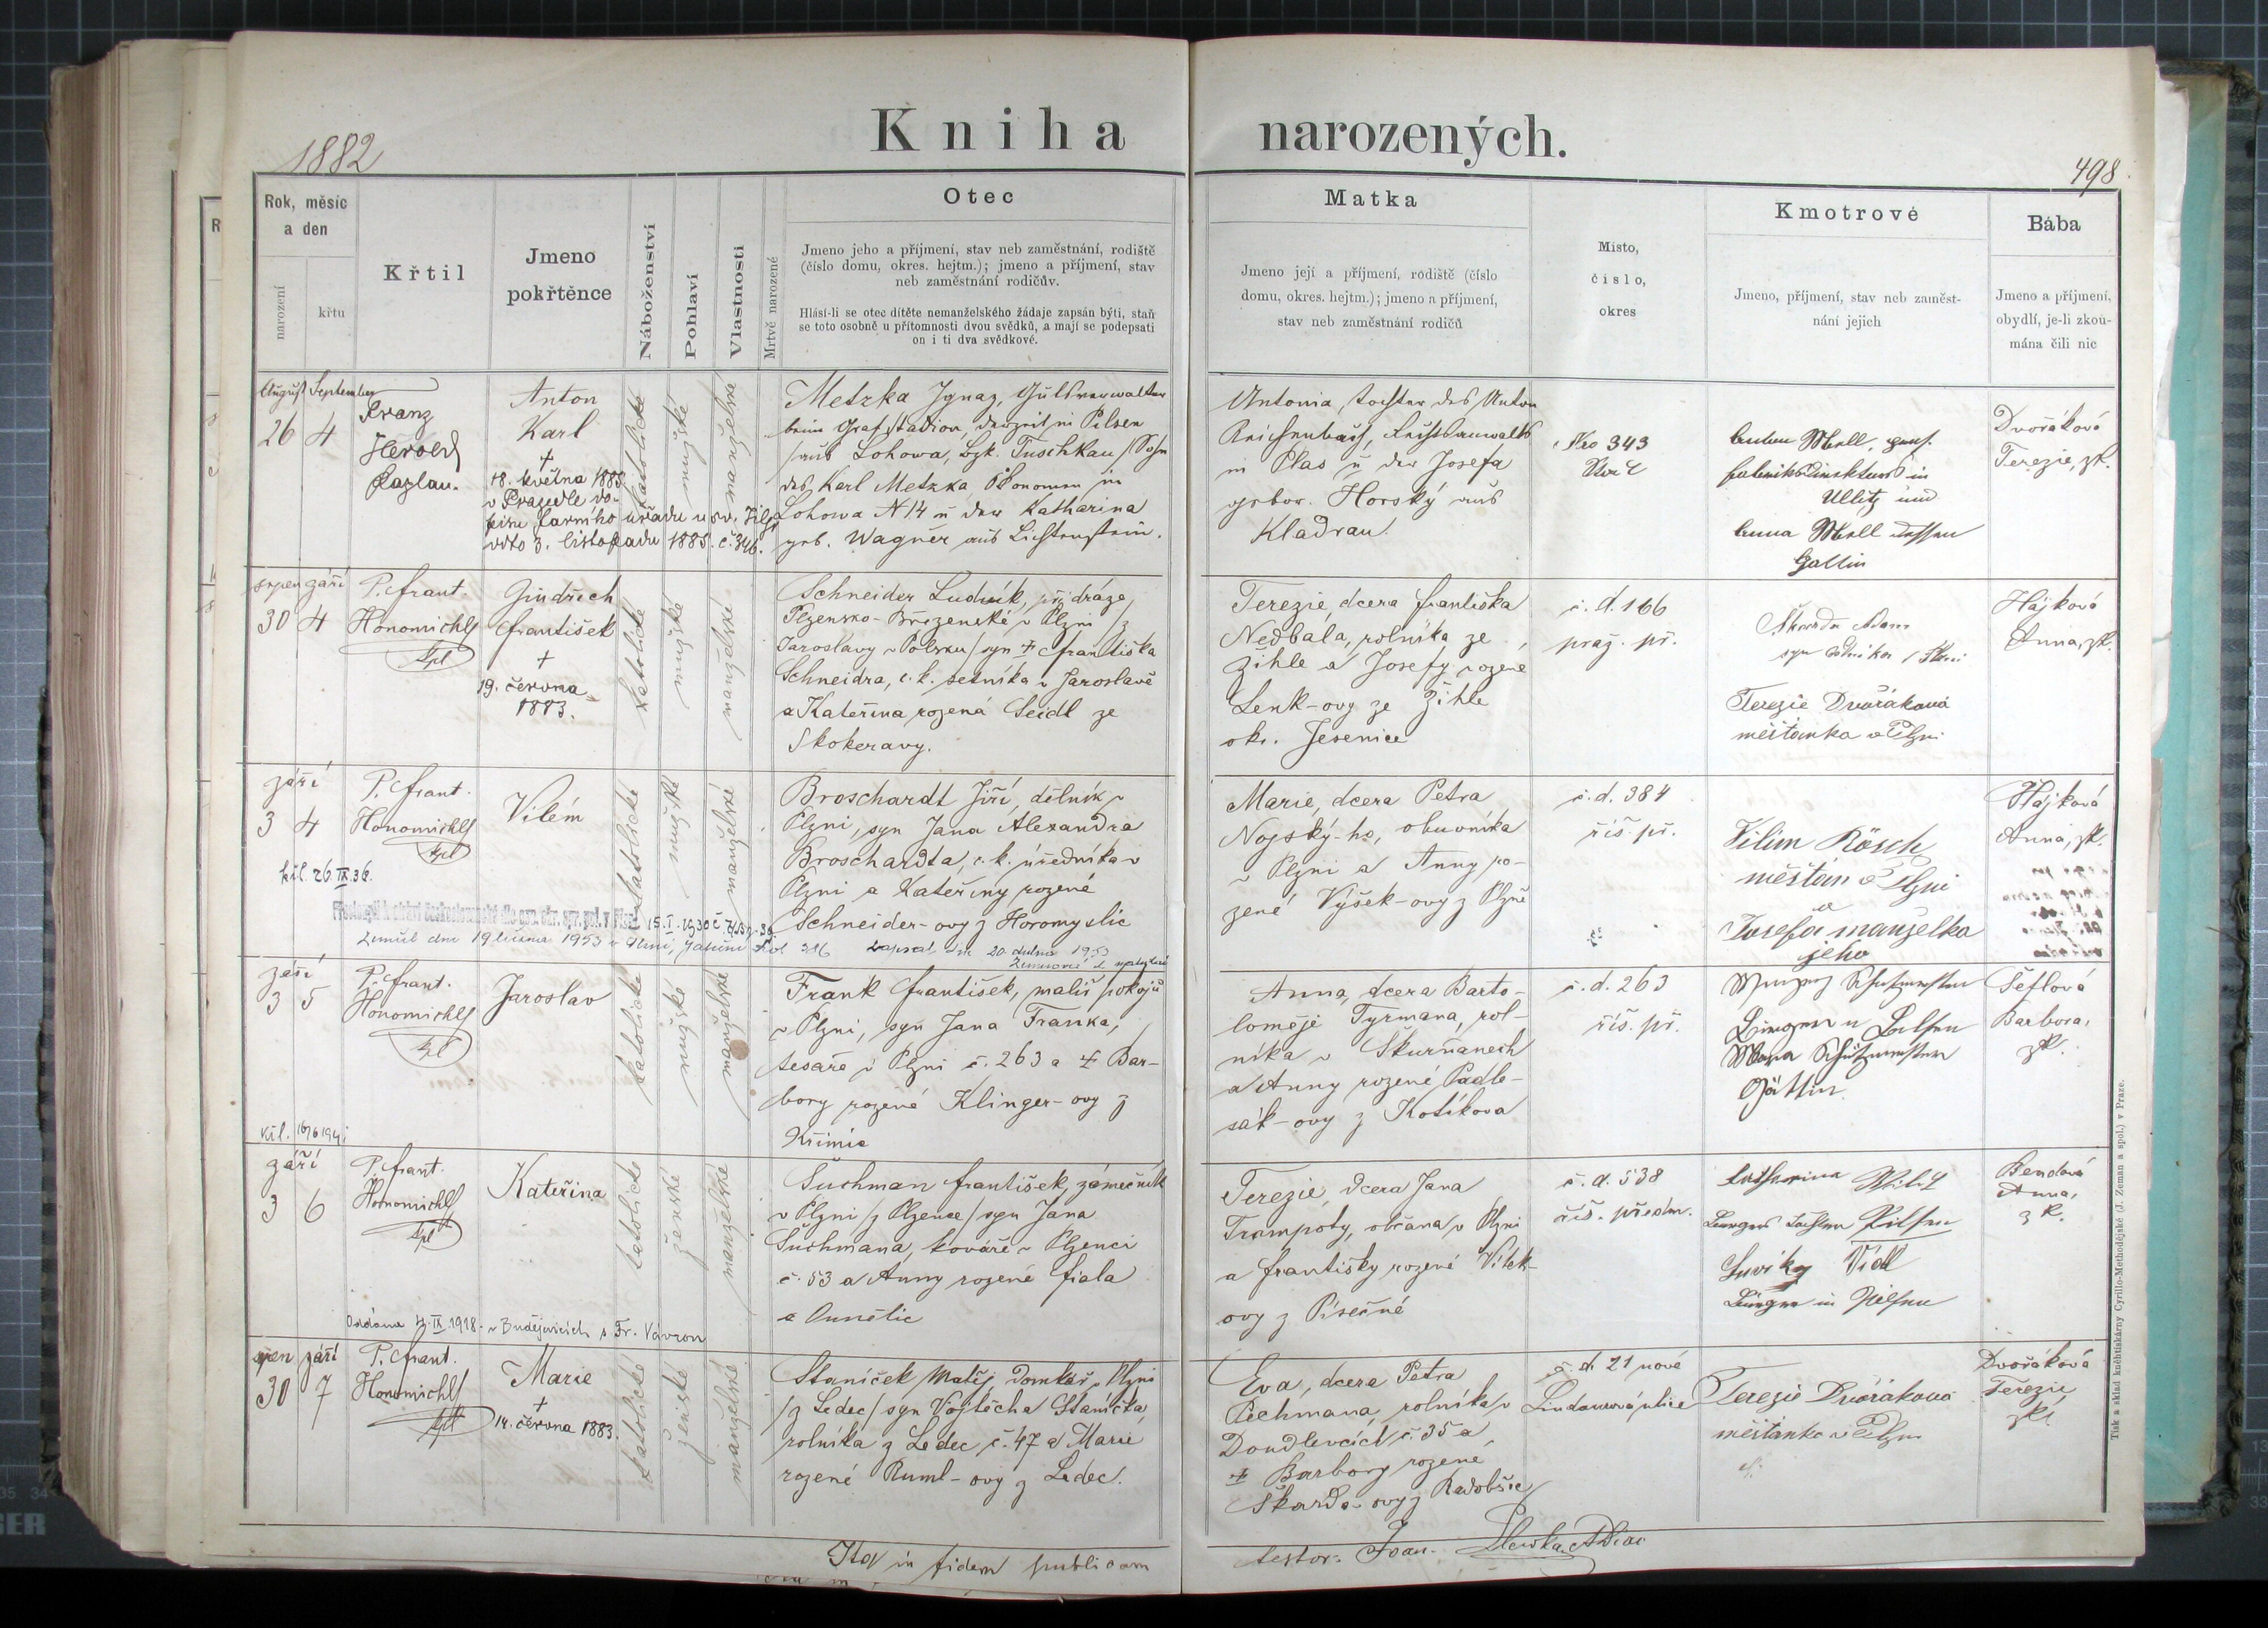 1882
Kniha narozených.
498
Rok, měsíc
a den
narození
křtu
Křtil
Jmeno
pokřtěnce
Náboženství
Pohlaví
Vlastnosti
Mrtvě narozené
Otec
Jmeno jeho a příjmení, stav neb zaměstnání, rodiště
(číslo domu, okres. hejtm.); jmeno a příjmení, stav
neb zaměstnání rodičův.
Hlásí-li se otec dítěte nemanželského žádaje zapsán býti, staň
se toto osobně u přítomnosti dvou svědků, a mají se podepsati
on i ti dva svědkové.
Matka
Jmeno její a příjmení, rodiště (číslo
domu, okres. hejtm.); jmeno a příjmení,
stav neb zaměstnání rodičů
Místo,
číslo,
okres
Kmotrové
Jmeno, příjmení, stav neb zaměst-
nání jejich
Bába
Jmeno a příjmení,
obydlí, je-li zkou-
mána čili nic
August September
26 4
Franz
Herold
Kaplan.
Anton
Karl
†
18. května 1885
v Praze dle do-
pisu farního úřadu u sv. Jilgí
ddto 3. listopadu 1885. č. 346.
katolické
mužské
manželské
Metzka Ignaz, Gutsverwalter
beim Graf Stadion, derzeit in Pilsen
/aus Lohowa, Bzk. Tuschkau/ Sohn
des Karl Metzka, Ökonomen in
Lohowa N 14 u der Katharina
geb. Wagner aus Lichtenstein.
Antonia, Tochter des Anton
Reichenbach, Amtsanwalts
in Plas u der Josefa
gebor. Horský aus
Kladrau.
Nro 343
Anton Moll, gew.
Fabriksdirektors in
Ullitz und
Anna Moll dessen
Gattin
Dvořáková
Terezie, zk.
srpen září
30 4
P. Frant.
Honomichl
kpl
Jindřich
František
†
19. června
1883.
katolické
mužské
manželské
Schneider Ludvík, při dráze
Plzensko-Březenské v Plzni /z
Jaroslavy v Polsku/ syn † Františka
Schneidra, c. k. setníka v Jaroslavě
a Kateřina rozená Seidl ze
Skokeravy.
Terezie, dcera Františka
Nedbala, rolníka ze
Žihle a Josefy rozené
Lenk-ovy ze Žihle
okr. Jesenice
č. d. 166
praž. př.
Škarda Adam
syn rolníka
Terezie Dvořáková
měštanka v Plzni
Hájková
Anna, zk.
září
3 4
P. Frant.
Honomichl
kpl
Vilém
katolické
mužské
manželské
Broschardt Jiří, dělník v
Plzni, syn Jana Alexandra
Broschardta, c. k. úředníka v
Plzni a Kateřiny rozené
Schneider-ovy z Horomyslic
Marie, dcera Petra
Nojský-ho, obuvníka
v Plzni a Anny ro-
zené Výšek-ovy z Plzně
č. d. 384
říš. př.
Vilím Rösch
měštan v Plzni
a
Josefa manželka
jeho
Hájková
Anna, zk.
kř.l. 26.IX.36.
Zemřel dne 19 března 1953 v Plzni,
září
3 5
P. Frant.
Honomichl
kpl
Jaroslav
katolické
mužské
manželské
Frank František, malíř pokojů
v Plzni, syn Jana Franka,
tesaře v Plzni č. 263 a † Bar-
bory rozené Klinger-ovy z
Křimic
Anna, dcera Barto-
loměje Tyrmana, rol-
níka v Skurňanech
a Anny rozené Padle-
sák-ovy z Kotíkova
č. d. 263
říš. př.
Wenzl Schützmeister
Bürger in Pilsen
Maria Schützmeister
Gattin.
Šeflová
Barbora,
zk.
kř.l.
září
3 6
P. Frant.
Honomichl
kpl
Kateřina
katolické
ženské
manželské
Suchman František, zámečník
v Plzni /z Plzence/ syn Jana
Suchmana, kováře v Plzenci
č. 53 a Anny rozené Fiala
z Ounětic
Terezie, dcera Jana
Trampoty, občana v Plzni
a Františky rozené Vítek-
ovy z Písečné
č. d. 538
říš. předm.
Katharina
Bürgers Tochter Pilsen
Vidl
Bürger in Pilsen
Bendová
Anna,
zk.
Oddána 4.IX.1918. v Budějovicích s Fr. Vávrou
srpen září
30 7
P. Frant.
Honomichl
kpl
Marie
†
14. června 1883.
katolické
ženské
manželské
Staníček Matěj domkář v Plzni
/z Ledec/ syn Vojtěcha Staníčka,
rolníka z Ledec č. 47 a Marie
rozené Ruml-ovy z Ledec.
Eva, dcera Petra
Pechmana, rolníka v
Doudlevcích č. 35 a
† Barbory rozené
Škarda-ovy z Radobšic
č. d. 21 nové
Lindaurová ulice
Terezie Dvořáková
měštanka v Plzni
Dvořáková
Terezie,
zk.
Ita in fidem publicam
testor: Joan.
Tisk a sklad knihtiskárny Cyrillo-Methodějské (J. Zeman a spol.) v Praze.